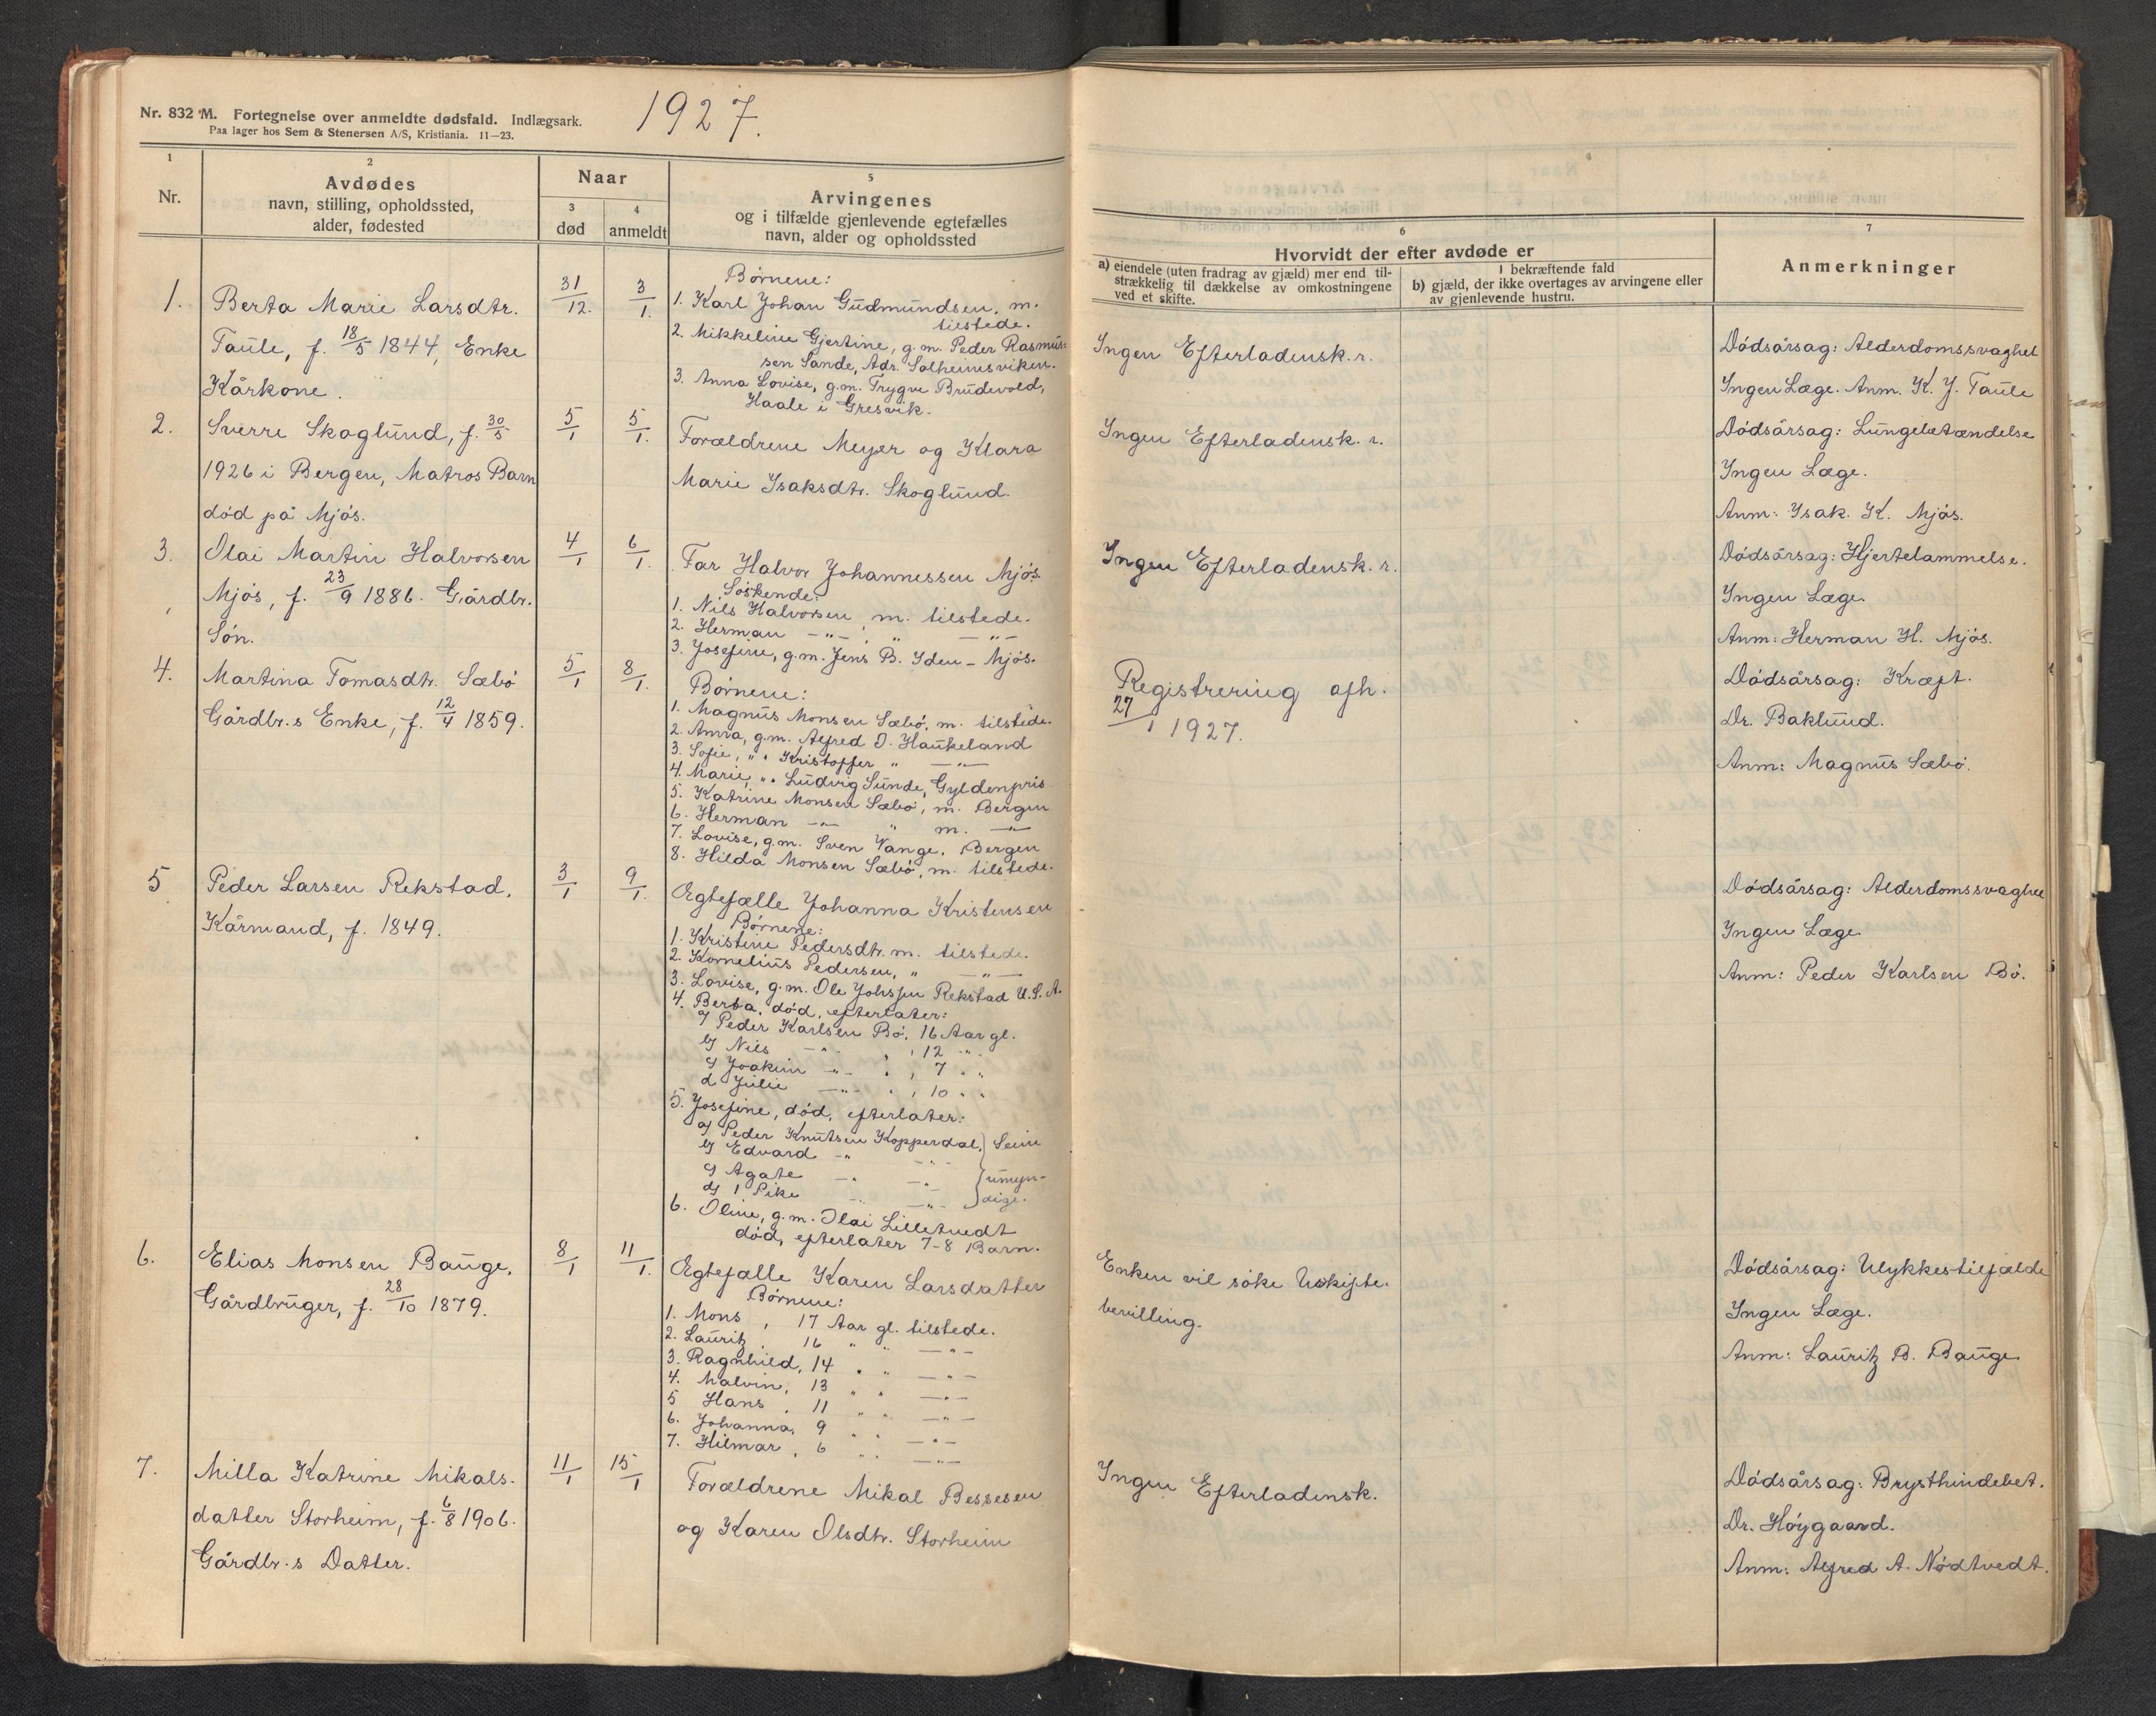 Nr. 832 M. Fortegnelse over anmeldte dødsfald. Indlægsark.
Paa lager hos Sem & Stenersen A/S, Kristiania. 11—23.
1927.
1
Nr.
2
Avdødes
navn, stilling, opholdssted,
alder, fødested
Naar
3
død
4
anmeldt
5
Arvingenes
og i tilfælde gjenlevende egtefælles
navn, alder og opholdssted
6
Hvorvidt der efter avdøde er
a) eiendele (uten fradrag av gjæld) mer end til-
strækkelig til dækkelse av omkostningene
ved et skifte.
I bekræftende fald
b) gjæld, der ikke overtages av arvingene eller
av gjenlevende hustru.
7
Anmerkninger
1.
Berta Marie Larsdtr.
Taule, f. 18/5 1844, Enke
Kårkone.
31/12.
3/1.
Børnene:
1. Karl Johan Gudmundsen, m.
tilstede.
2. Mikkeline Gjertine, g.m. Peder Rasmus-
sen Sande, Adr. Solheimsviken.
3. Anna Lovise, g.m. Trygve Brudevold,
Haale i Gresvik.
Ingen Efterladensk.r.
Dödsårsag: Alderdomssvaghet
Ingen Læge. Anm. K. J. Taule
2.
Sverre Skoglund, f. 30/5
1926 i Bergen, Matros Barn
död på Mjös.
5/1
5/1.
Forældrene Meyer og Klara
Marie Isaksdtr. Skoglund.
Ingen Efterladensk. r.
Dödsårsag: Lungebetændelse
Ingen Læge.
Anm: Isak. K. Mjös.
3.
Olai Martin Halvorsen
Mjös, f. 23/9 1886. Gårdbr.
Sön.
4/1
6/1.
Far Halvor Johannessen Mjös.
Söskende:
1. Nils Halvorsen, m. tilstede.
2. Herman -"- , " -"-
3. Josefine, g.m. Jens B. Iden - Mjös.
Ingen Efterladensk. r.
Dödsårsag: Hjertelammelse.
Ingen Læge.
Anm: Herman H. Mjös.
4.
Martina Tomasdtr. Sæbö
Gårdbr.s Enke, f. 12/4 1859.
5/1
8/1.
Börnene:
1. Magnus Monsen Sæbö, m. tilstede.
2. Anna, g.m. Alfred O. Haukeland
3. Sofie, " " Kristoffer " -"-
4. Marie, " " Ludvig Sunde, Gyldenpris
5. Katrine Monsen Sæbö, m. Bergen
6. Herman -"- " m. -"-
7. Lovise, g.m. Sven Vange, Bergen
8. Hilda Monsen Sæbö, m. tilstede.
Registrering afh.
27/1 1927.
Dödsårsag: Kræft.
Dr. Baklund.
Anm: Magnus Sæbö.
5
Peder Larsen Rekstad,
Kårmand, f. 1849.
3/1
9/1.
Ægtefælle Johanna Kristensen
Børnene:
1. Kristine Pedersdtr. m. tilstede.
2. Kornelius Pedersen, " -"-
3. Lovise, g.m. Ole Johssen Rekstad U.S.A.
4. Berta, död, efterlater:
a) Peder Karlsen Bö, 16 Aar gl.
b) Nils -"- " , 12 " "
c) Joakim -"- " , 7 " "
d Julie -"- " , 10 " "
5. Josefine, död, efterlater:
a) Peder Knutsen Kopperdal, Seim
b) Edvard -"- -"-
c) Agate -"- -"- umyn-
d) 1 Pike -"- -"- dige.
6. Oline, g.m. Olai Lilletvedt
död, efterlater 7-8 Barn.
Dödsårsag: Alderdomssvaghet
Ingen Læge.
Anm: Peder Karlsen Bö.
6.
Elias Monsen Bauge,
Gårdbruger, f. 28/10 1879.
8/1
11/1.
Ægtefælle Karen Larsdatter
Børnene:
1. Mons , 17 Aar gl. tilstede.
2. Lauritz, 16 " " -"-
3. Ragnhild, 14 " " -"-
4. Malvin, 13 " " -"-
5 Hans , 11 " " -"-
6. Johanna, 9 " " -"-
7. Hilmar , 6 " " -"-
Enken vil söke Uskifte-
bevilling.
Dödsårsag: Ulykkestilfælde
Ingen Læge.
Anm: Lauritz B. Bauge.
7.
Milla Katrine Mikals-
datter Storheim, f. 6/8 1906.
Gårdbr.s Datter.
11/1
15/1
Forældrene Mikal Bessesen
og Karen Olsdtr. Storheim
Ingen Efterladensk.
Dödsårsag: Brysthindebet.
Dr. Höygaard.
Anm: Alfred A. Nödtvedt.